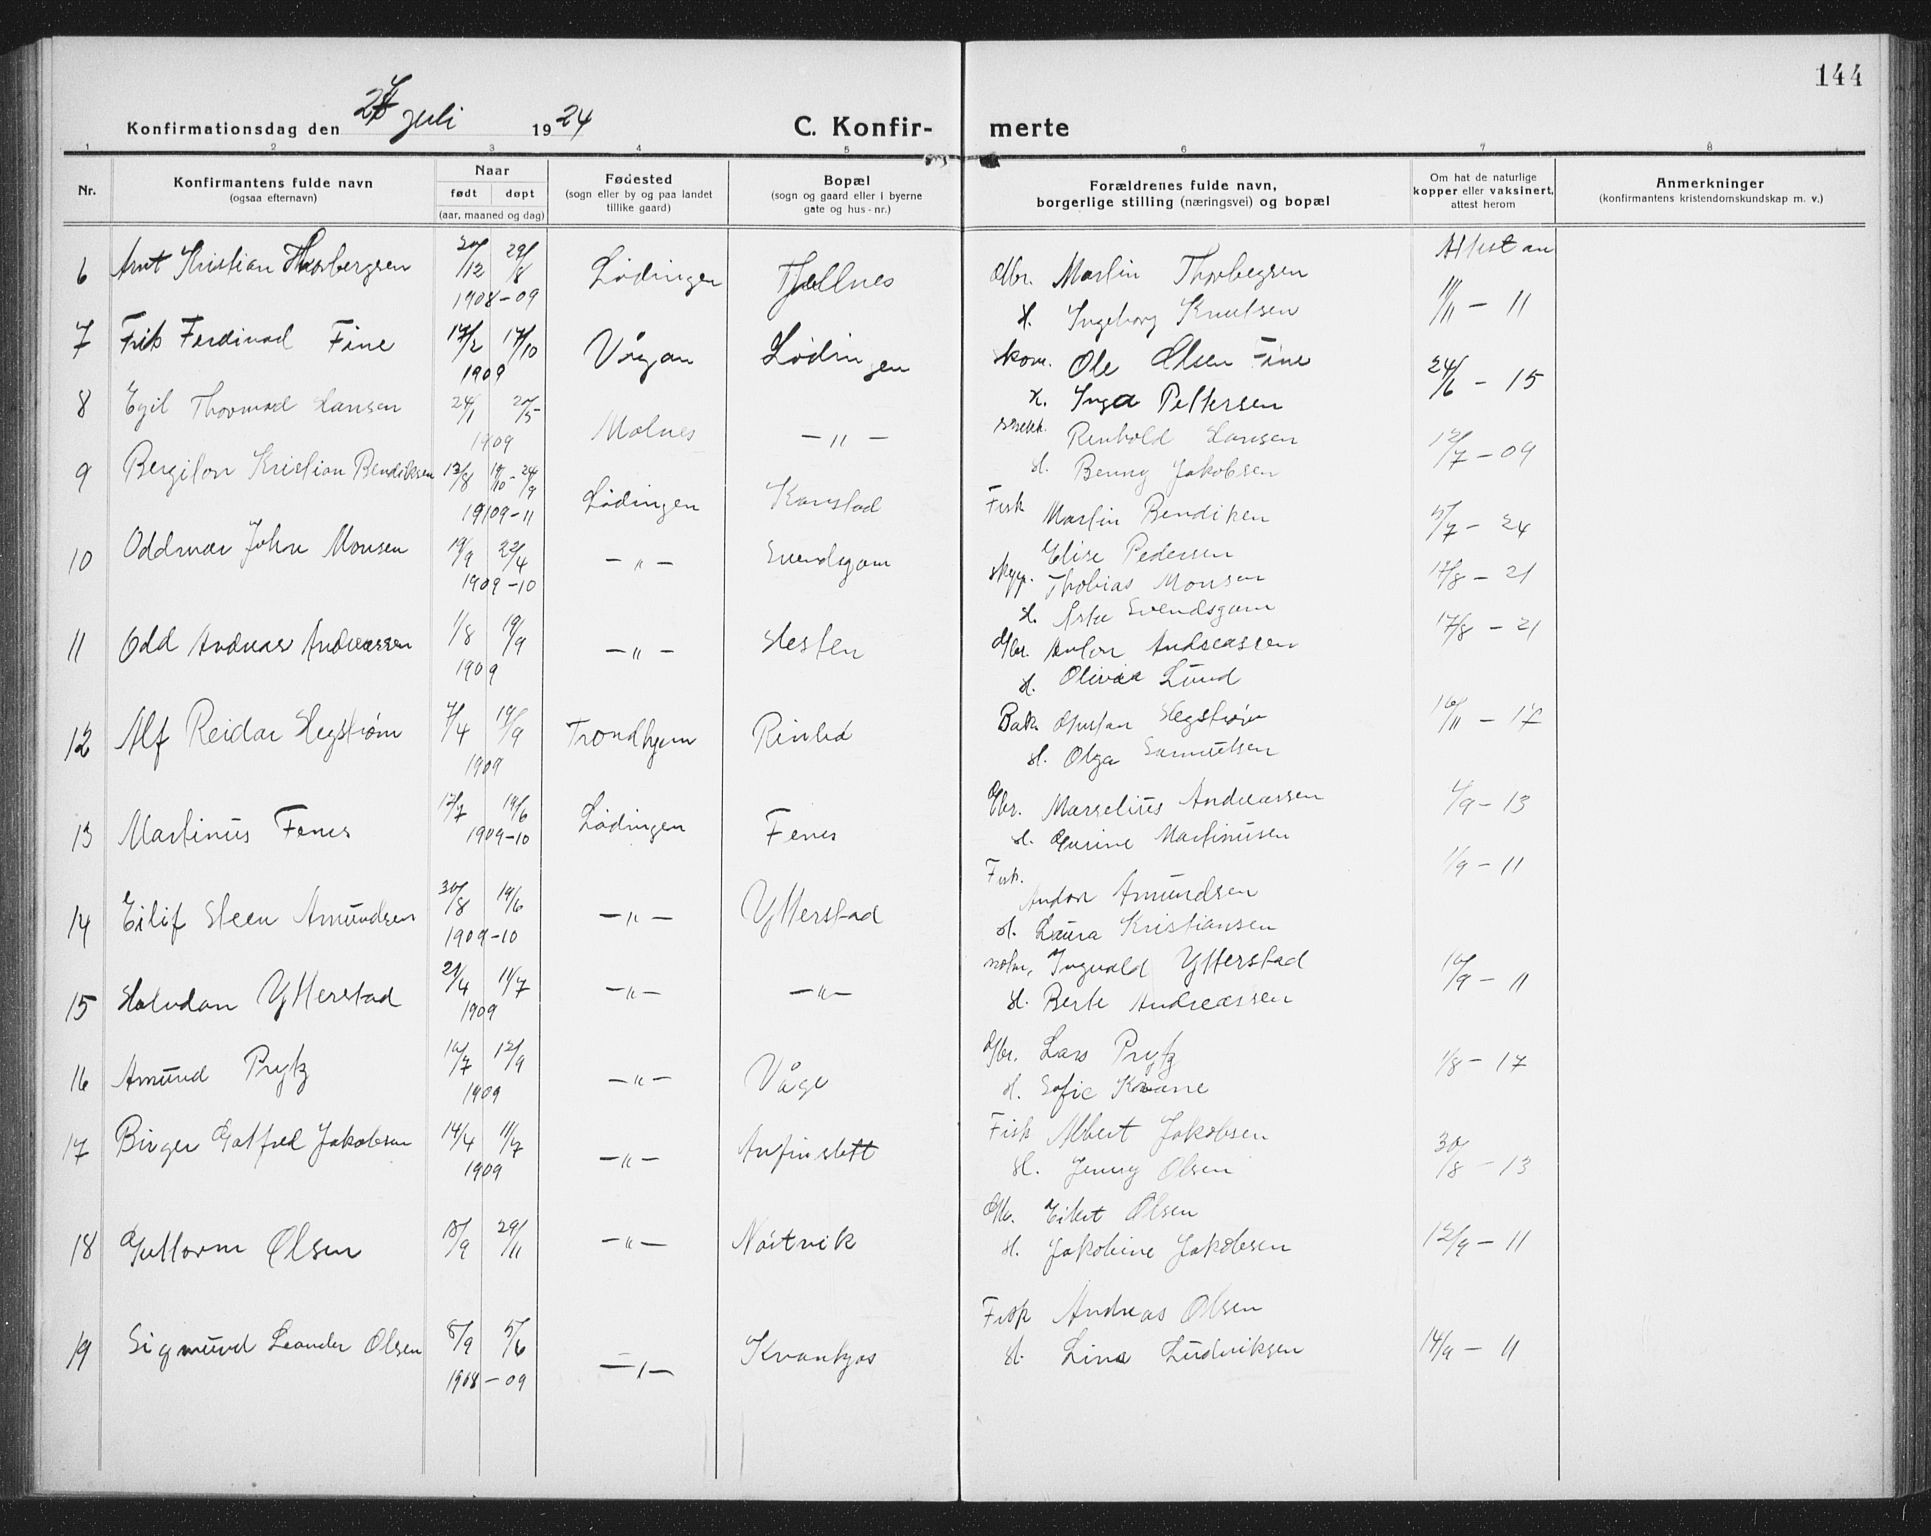 144
Konfirmationsdag den juli 1924
C. Konfirmerte
1 2 3 4 5 6 7 8
Nr. Konfirmantens fulde navn (ogsaa efternavn) Naar født døpt (aar, maaned og dag) Fødested (sogn eller by og paa landet tillike gaard) Bopæl (sogn og gaard eller i byerne gate og hus-nr.) Forældrenes fulde navn, borgerlige stilling (næringsvei) og bopæl Om hat de naturlige kopper eller vaksinert, attest herom Anmerkninger (konfirmantens kristendomskundskap m. v.)
6 Arnt Kristian Thorbergsen 20/12 29/8 1908-09 Lødingen Martin Thorbegsen Attest an
H. Ingeborg Knutsen 11/11 - 11
7 Ferdinad Fine 17/2 17/10 1909 Vågan Lødingen Ole Olsen Fine 24/6 - 15
H. Inga Pettersen
8 Egil Thormod Hansen 24/1 20/5 1909 Molnes -"- Reinhold Hansen 12/7 - 09
H. Benny Jakobsen
9 Kristian Bendiksen 13/8 24/9 1909-11 Lødingen Kanstad Fisk Martin Bendiken 5/7 - 24
Elise Pedersen
10 Oddmar Johan Monsen 19/9 22/4 1909-10 -"- Svendsgam Thobias Monsen 17/8 - 21
H. Svendsgam
11 Odd Andreas Andreassen 1/8 19/9 1909 -"- Hesten Gbr. Anton Andreassen 17/8 - 21
H. Olivia Lund
12 Alf Reidar Hegstrøm 7/4 19/9 1909 Trondhjem Rinbø Bak. Hegstrøm 16/11 - 17
H. Olga Samuelsen
13 Martinus Fenes 12/7 19/6 1909-10 Lødingen Fenes Gbr. Marselius Andreassen 1/9 - 13
H. Martinusen
14 Eilif Steen Amundsen 30/8 19/6 1909-10 -"- Ytterstad Fisk. Andor Amundsen 1/9 - 11
H. Laura Kristiansen
15 Halvdan Ytterstad 21/4 11/7 1909 -"- -"- Ingvald Ytterstad 10/9 - 11
H. Berte Andreassen
16 Amund Prytz 10/7 12/9 1909 -"- Våge Gbr. Lars Prytz 1/8 - 17
H. Sofie Kvane
17 Birger Gotfred Jakobsen 14/4 11/7 1909 -"- Anfinslett Fisk Albert Jakobsen 30/8 - 13
H. Jenny Olsen
18 Guttorm Olsen 18/9 29/11 -"- Nøstvik Gbr. Eilert Olsen
H. Jakobine Jakobsen 12/9 - 11
19 Sigmund Leander Olsen 8/9 5/6 1908-09 -"- Fisk Andreas Olsen
H. Lina Ludviksen 14/9 - 11